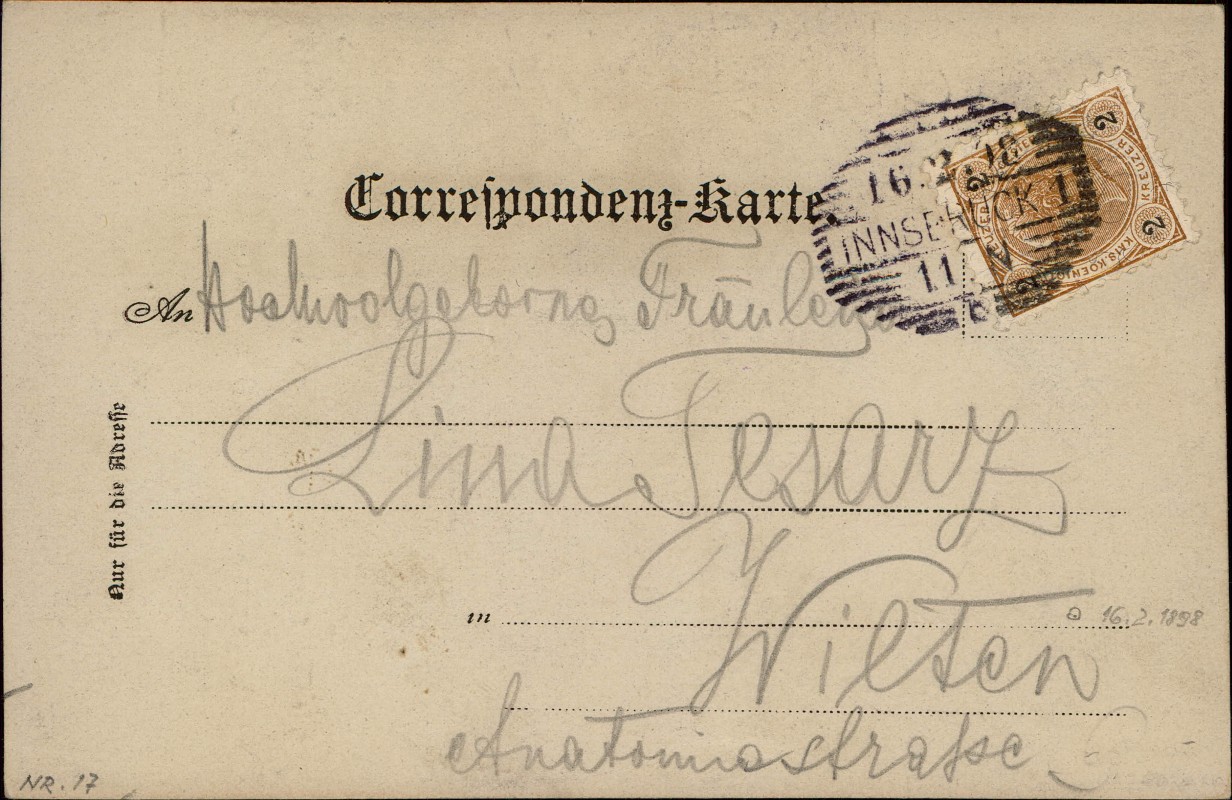 Correspondenz-Karte.
16.2.98
INNSBRUCK 1
11
2 KREUZER 2
An Hochwolgeborne Fräulein
Lina Tesarz
in Wilten
Anatomiestraße
Nur für die Adresse
16.2.1898
NR. 17